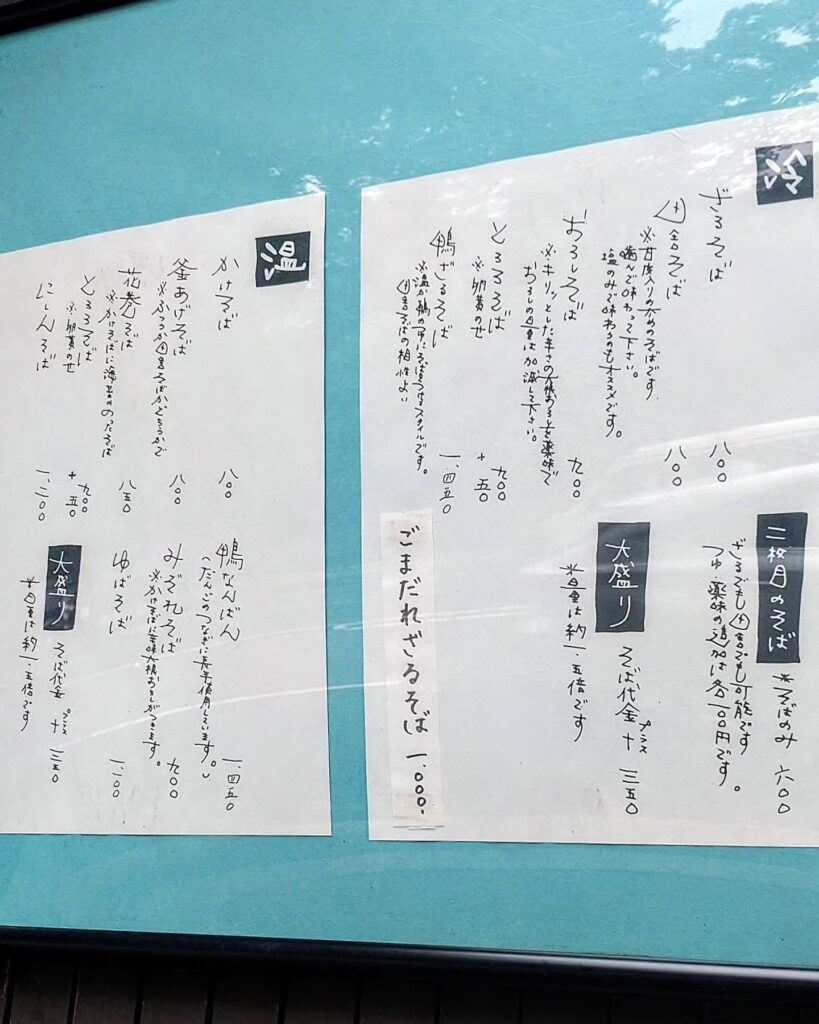 冷
ざるそば 八〇〇
田舎そば 八〇〇
※甘皮入りの太めのそばです。
噛んで味わって下さい。
塩のみで味わうのもオススメです。
おろしそば 九〇〇
※キリッとした辛さの大根おろしを薬味で
おろしの量は加減して下さい。
とろろそば 九〇〇
※卵黄のせ +五〇
鴨ざるそば 一、四五〇
※温か鴨のつゆにそばをつけるスタイルです。
田舎そばの相性よい
二枚目のそば *そばのみ 六〇〇
ざるでも田舎でも可能です
つゆ・薬味の追加は各一〇〇円です。
大盛り そば代金+プラス 三五〇
*量は約一.五倍です
ごまだれざるそば 一、〇〇〇-
温
かけそば 八〇〇
釜あげそば 八〇〇
※ふつうか田舎そばかどちらかで
花巻そば 八五〇
※かけそばに海苔ののったそば
とろろそば 九〇〇
※卵黄のせ +五〇
にしんそば 一、二〇〇
鴨なんばん 一、四五〇
(だんごのつなぎに長芋使用しています。)
みぞれそば 九〇〇
※かけそばに辛味大根おろしがつきます。
ゆばそば 一、一〇〇
大盛り そば代金 プラス+ 三五〇
*量は約一.五倍です